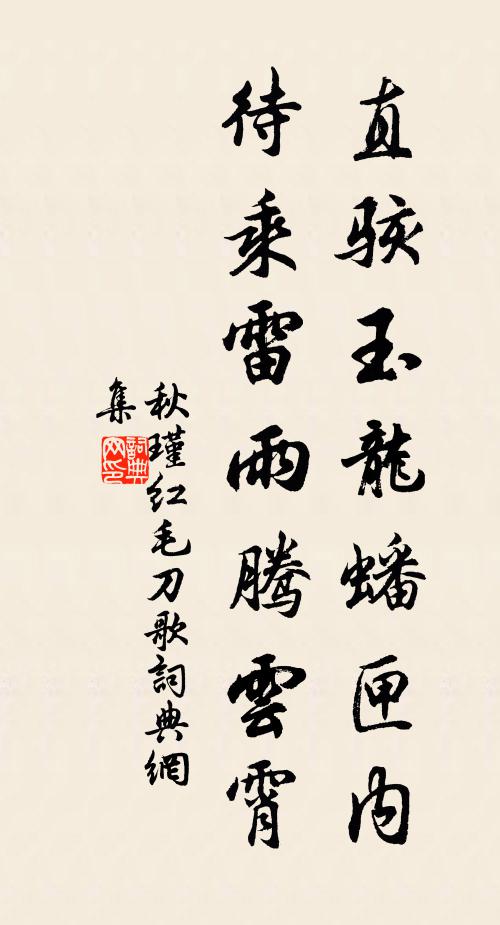 直駭玉龍蟠匣內
待乘雷雨騰雲霄
秋瑾紅毛刀歌詞典網
集
詞典
网印